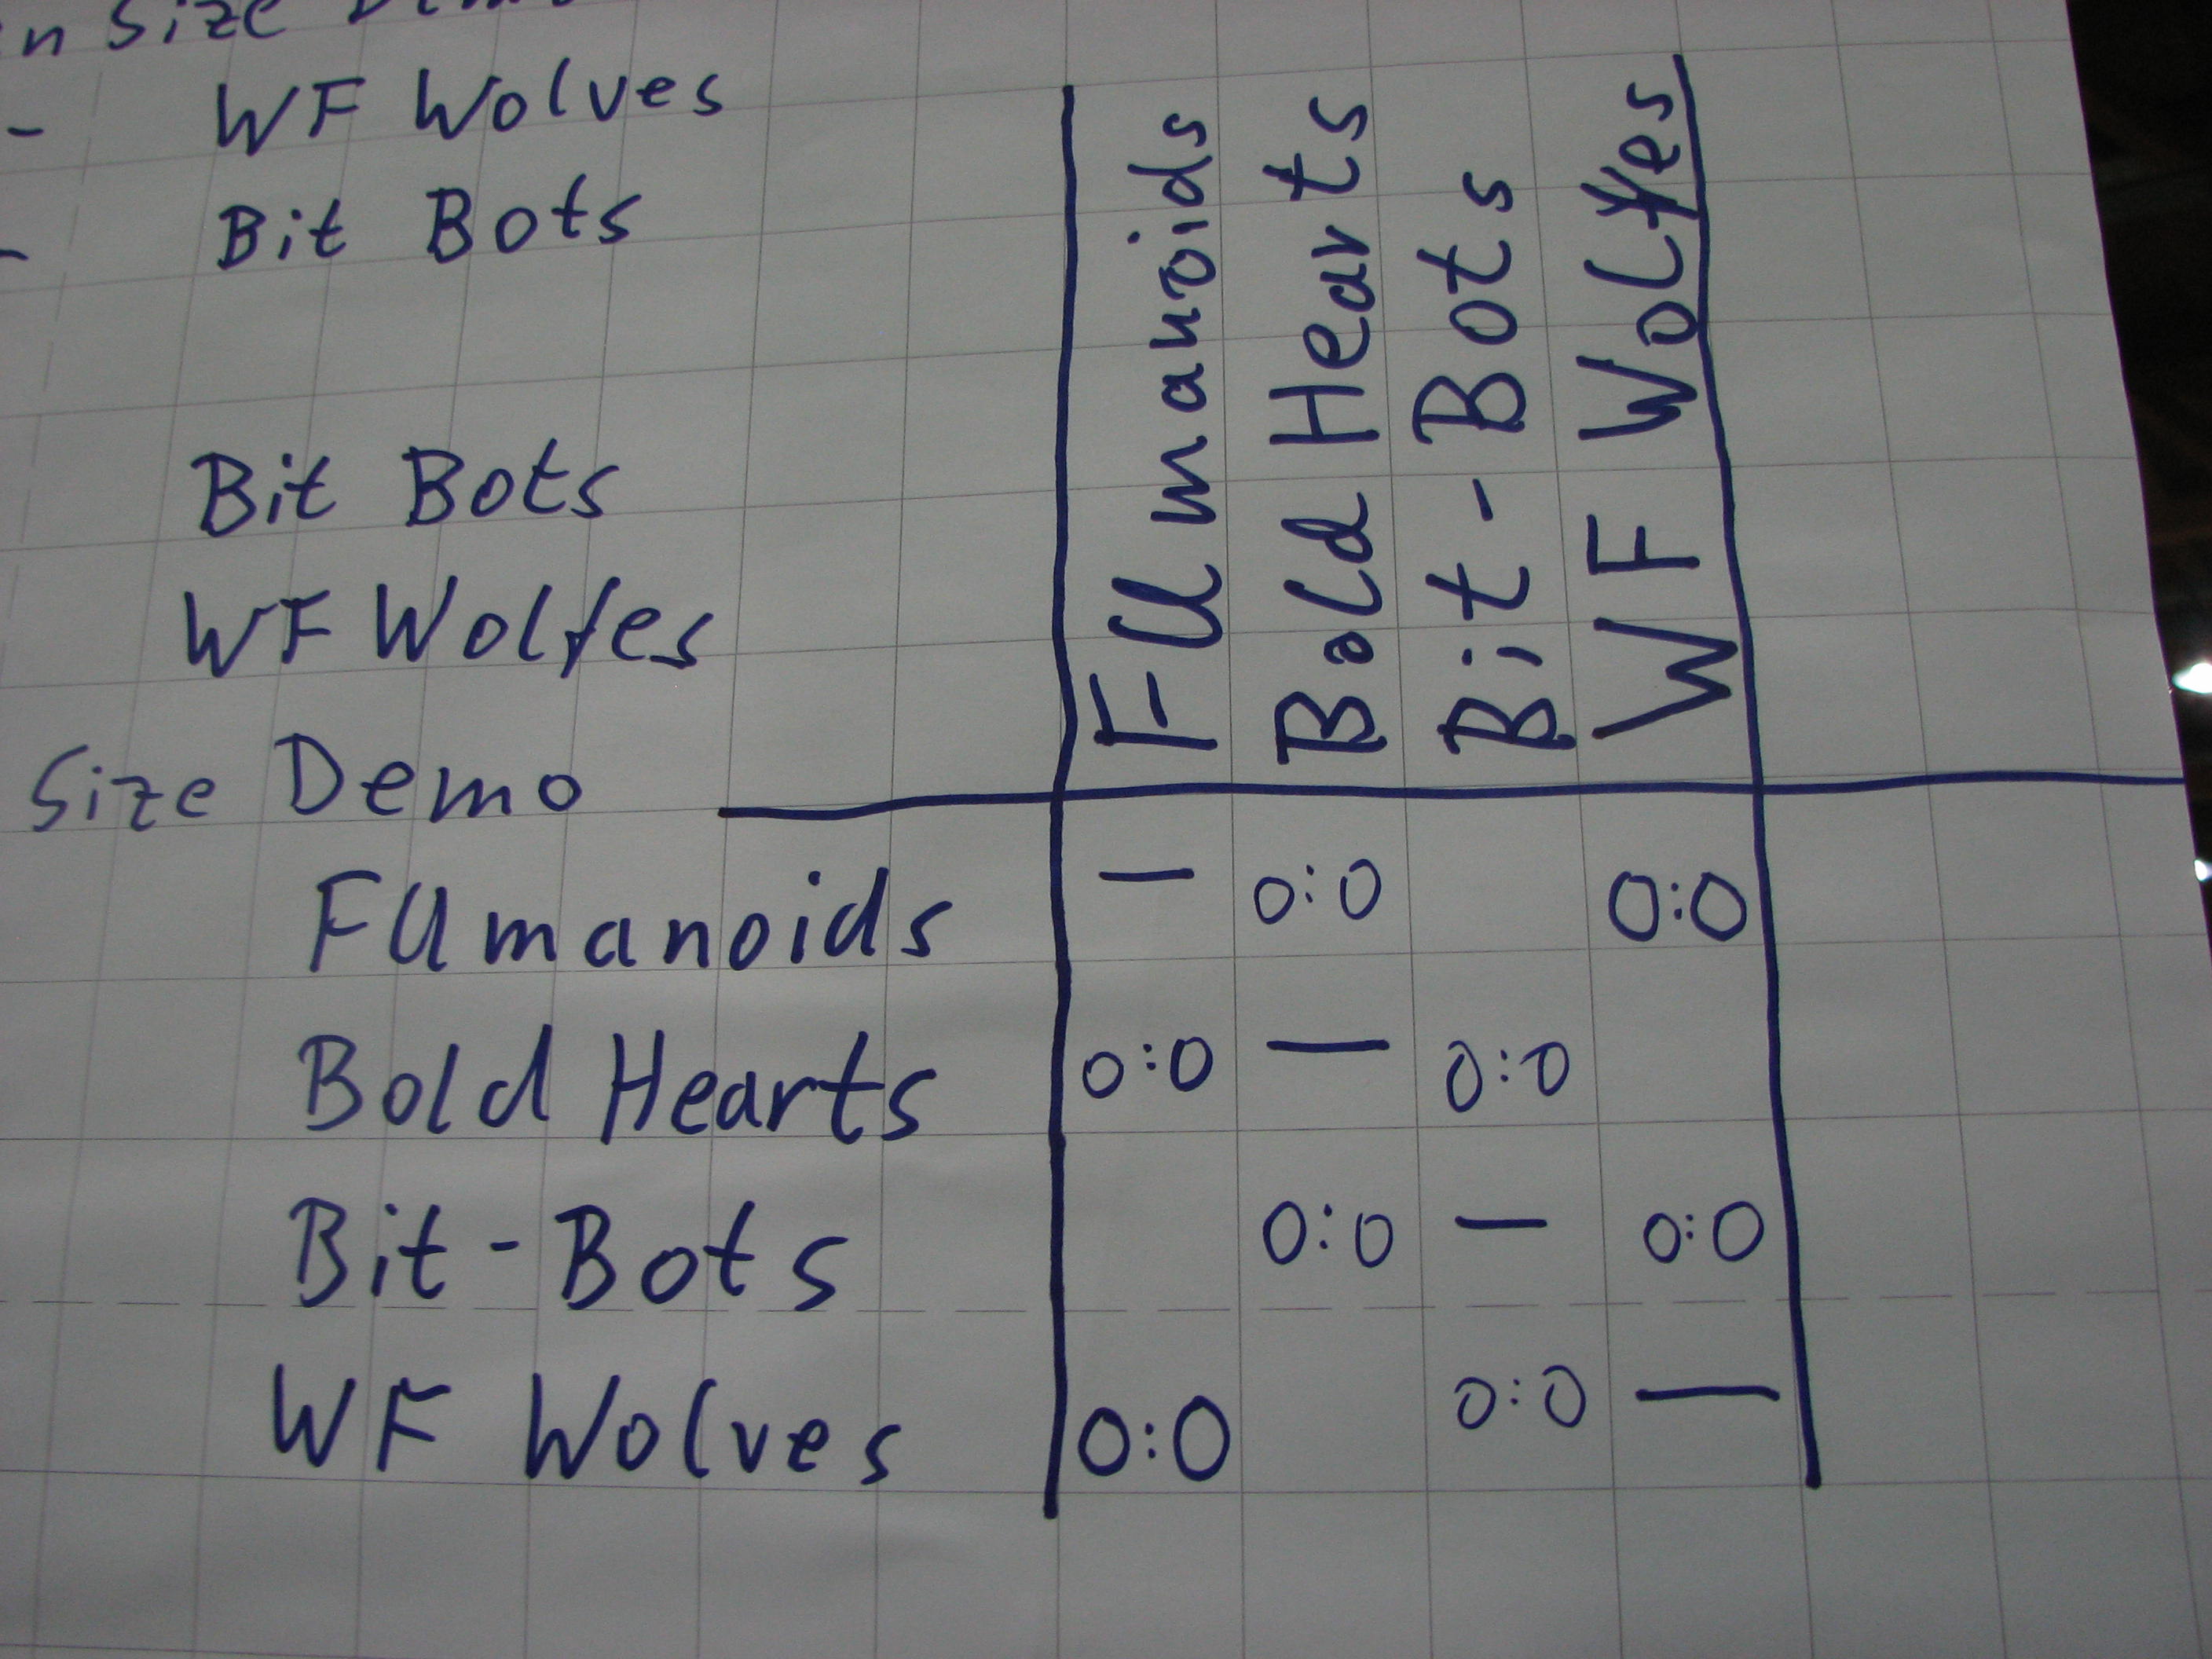 n Size Demo
- WF Wolves
- Bit Bots
Bit Bots
WF Wolfes
Size Demo
FUmanoids
Bold Hearts
Bit-Bots
WF Wolves
FUmanoids — 0:0 0:0
Bold Hearts 0:0 — 0:0
Bit-Bots 0:0 — 0:0
WF Wolves 0:0 0:0 —